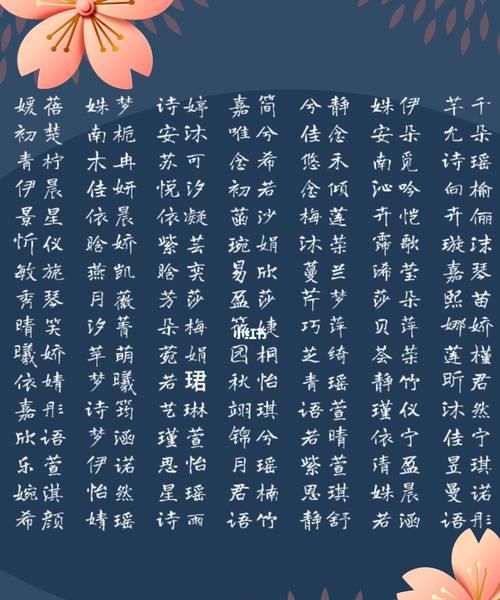 媛蓓 姝梦 诗婷 嘉简 兮静 姝伊 芊千
初楚 南栀 安沐 唯兮 佳念 安朵 尤朵
青柠 木冉 苏可 念希 悠禾 南觅 诗瑶
伊晨 佳妍 悦汐 初若 念倾 沁吟 向榆
景星 依晨 依凝 茵沙 梅莲 卉恺 卉俪
忻仪 晗娇 紫芸 琬娟 沐荣 霈歌 璇沫
敏旋 燕凯 晗奕 易欣 蔓兰 浠莹 嘉琴
秀琴 月薇 芳莎 盈莎 芹梦 莎朵 熙苗
晴笑 汐菁 朵梅 婕 巧萍 贝萍 娜娇
小红书
曦娇 苹萌 菀娟 园桐 芝绮 荟荣 莲槿
依婧 梦曦 若珺 秋怡 青瑶 静竹 昕君
嘉彤 诗筠 艺琳 翊琪 语萱 瑾仪 沐怡
欣语 梦涵 瑾萱 锦兮 若晴 依宁 佳宁
乐萱 伊诺 思怡 月瑶 紫萱 清盈 昱琪
婉淇 怡然 星瑶 君楠 思琪 姝晨 曼诺
希颜 婧瑶 诗雨 语竹 静舒 若涵 语彤